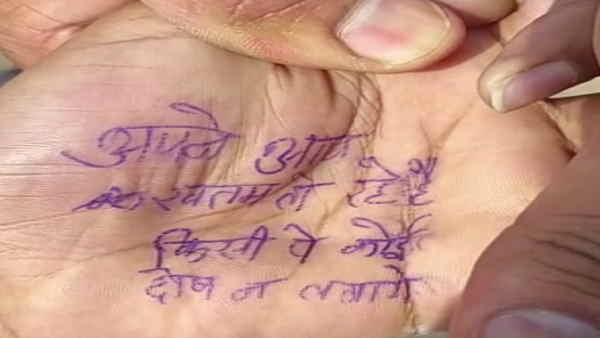 अपने आप
खतम हो रहे है
किसी पे कोई
दोष न लगागे